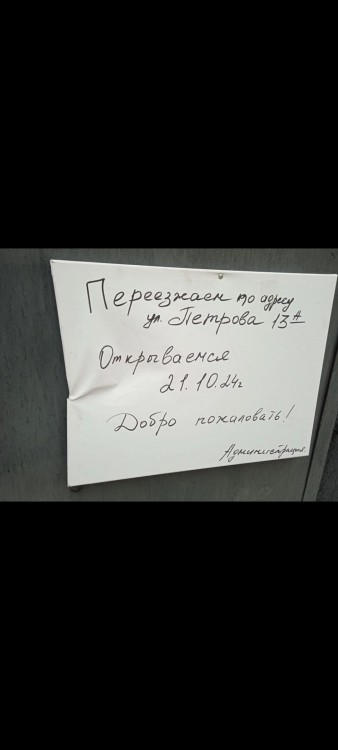 Переезжаем по адресу
ул. Петрова 13А
Открываемся
21.10.24г
Добро пожаловать!
Администрация.